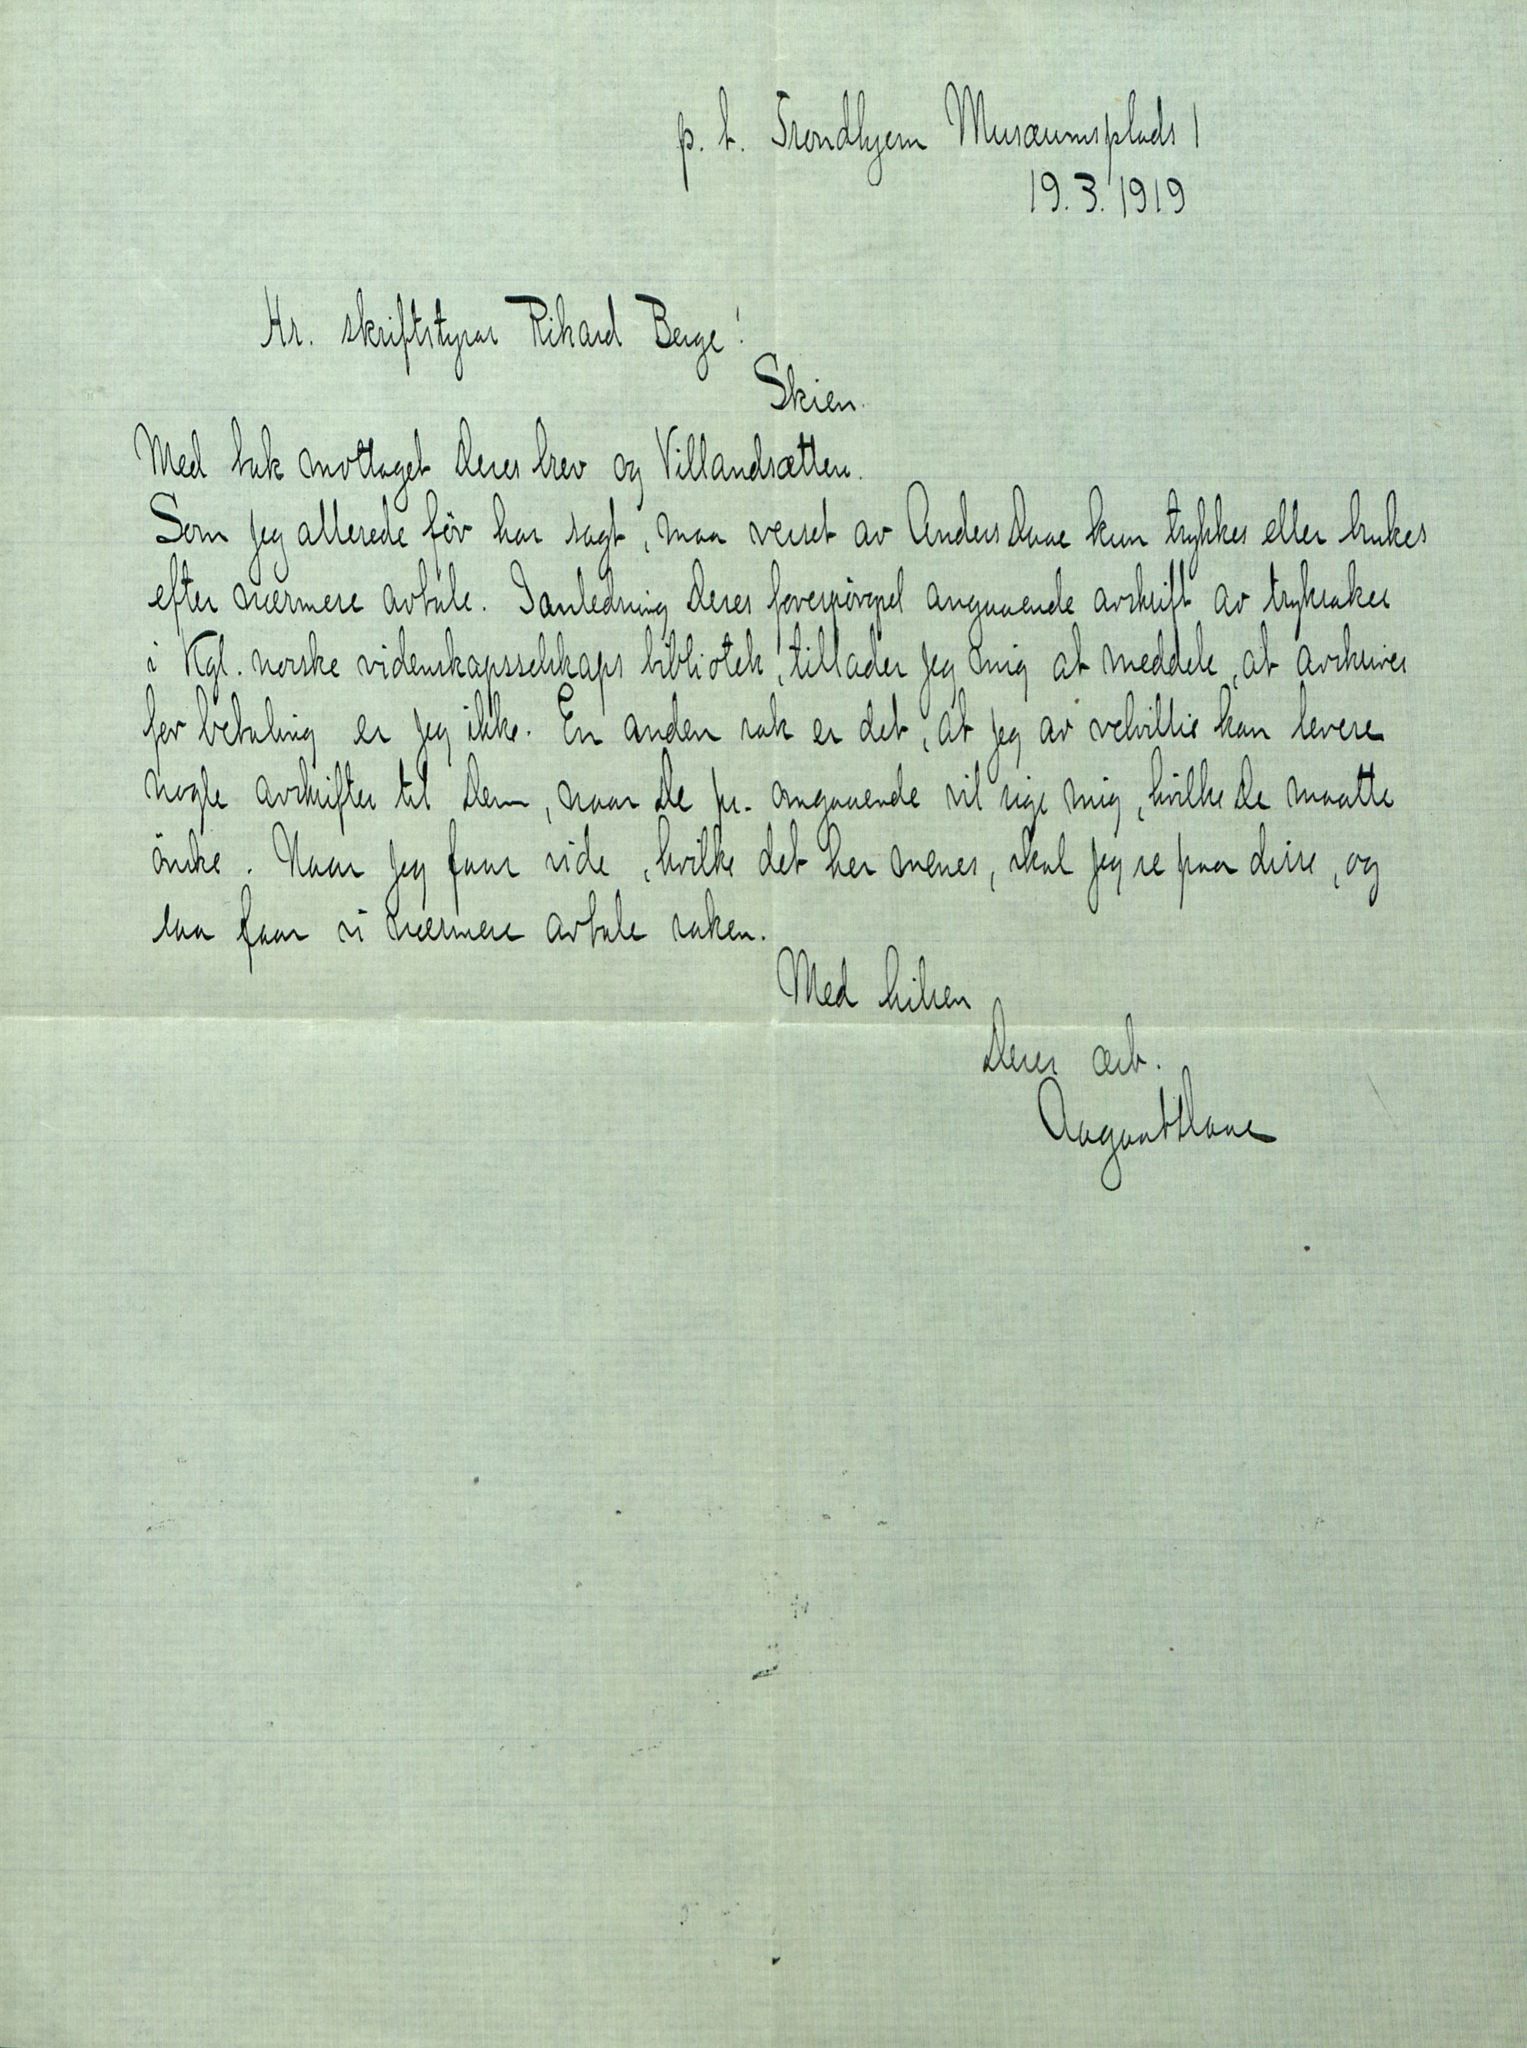 p. t. Trondhjem Musæumsplads 1
19.3.1919
Hr. skriftstyrar Rikard Berge!
Skien.
Med tak mottaget Deres brev og Villandsætten.
Som jeg allerede för har sagt, maa verset av Anders Daae kun trykkes eller brukes
efter nærmere avtale. I anledning Deres forespörgsel angaaende avskrift av tryksaker
i Kgl. norske videnskapsselskaps bibliotek, tillader jeg mig at meddele, at avskriver
for betaling er jeg ikke. En anden sak er det, at jeg av velvillie kan levere
nogle avskrifter til Dem, naar De pr. omgaaende vil sige mig, hvilke De maatte
önske. Naar jeg faar vide, hvilke det her menes, skal jeg se paa disse, og
saa faar vi nærmere avtale saken.
Med hilsen
Deres ærb.
Daae